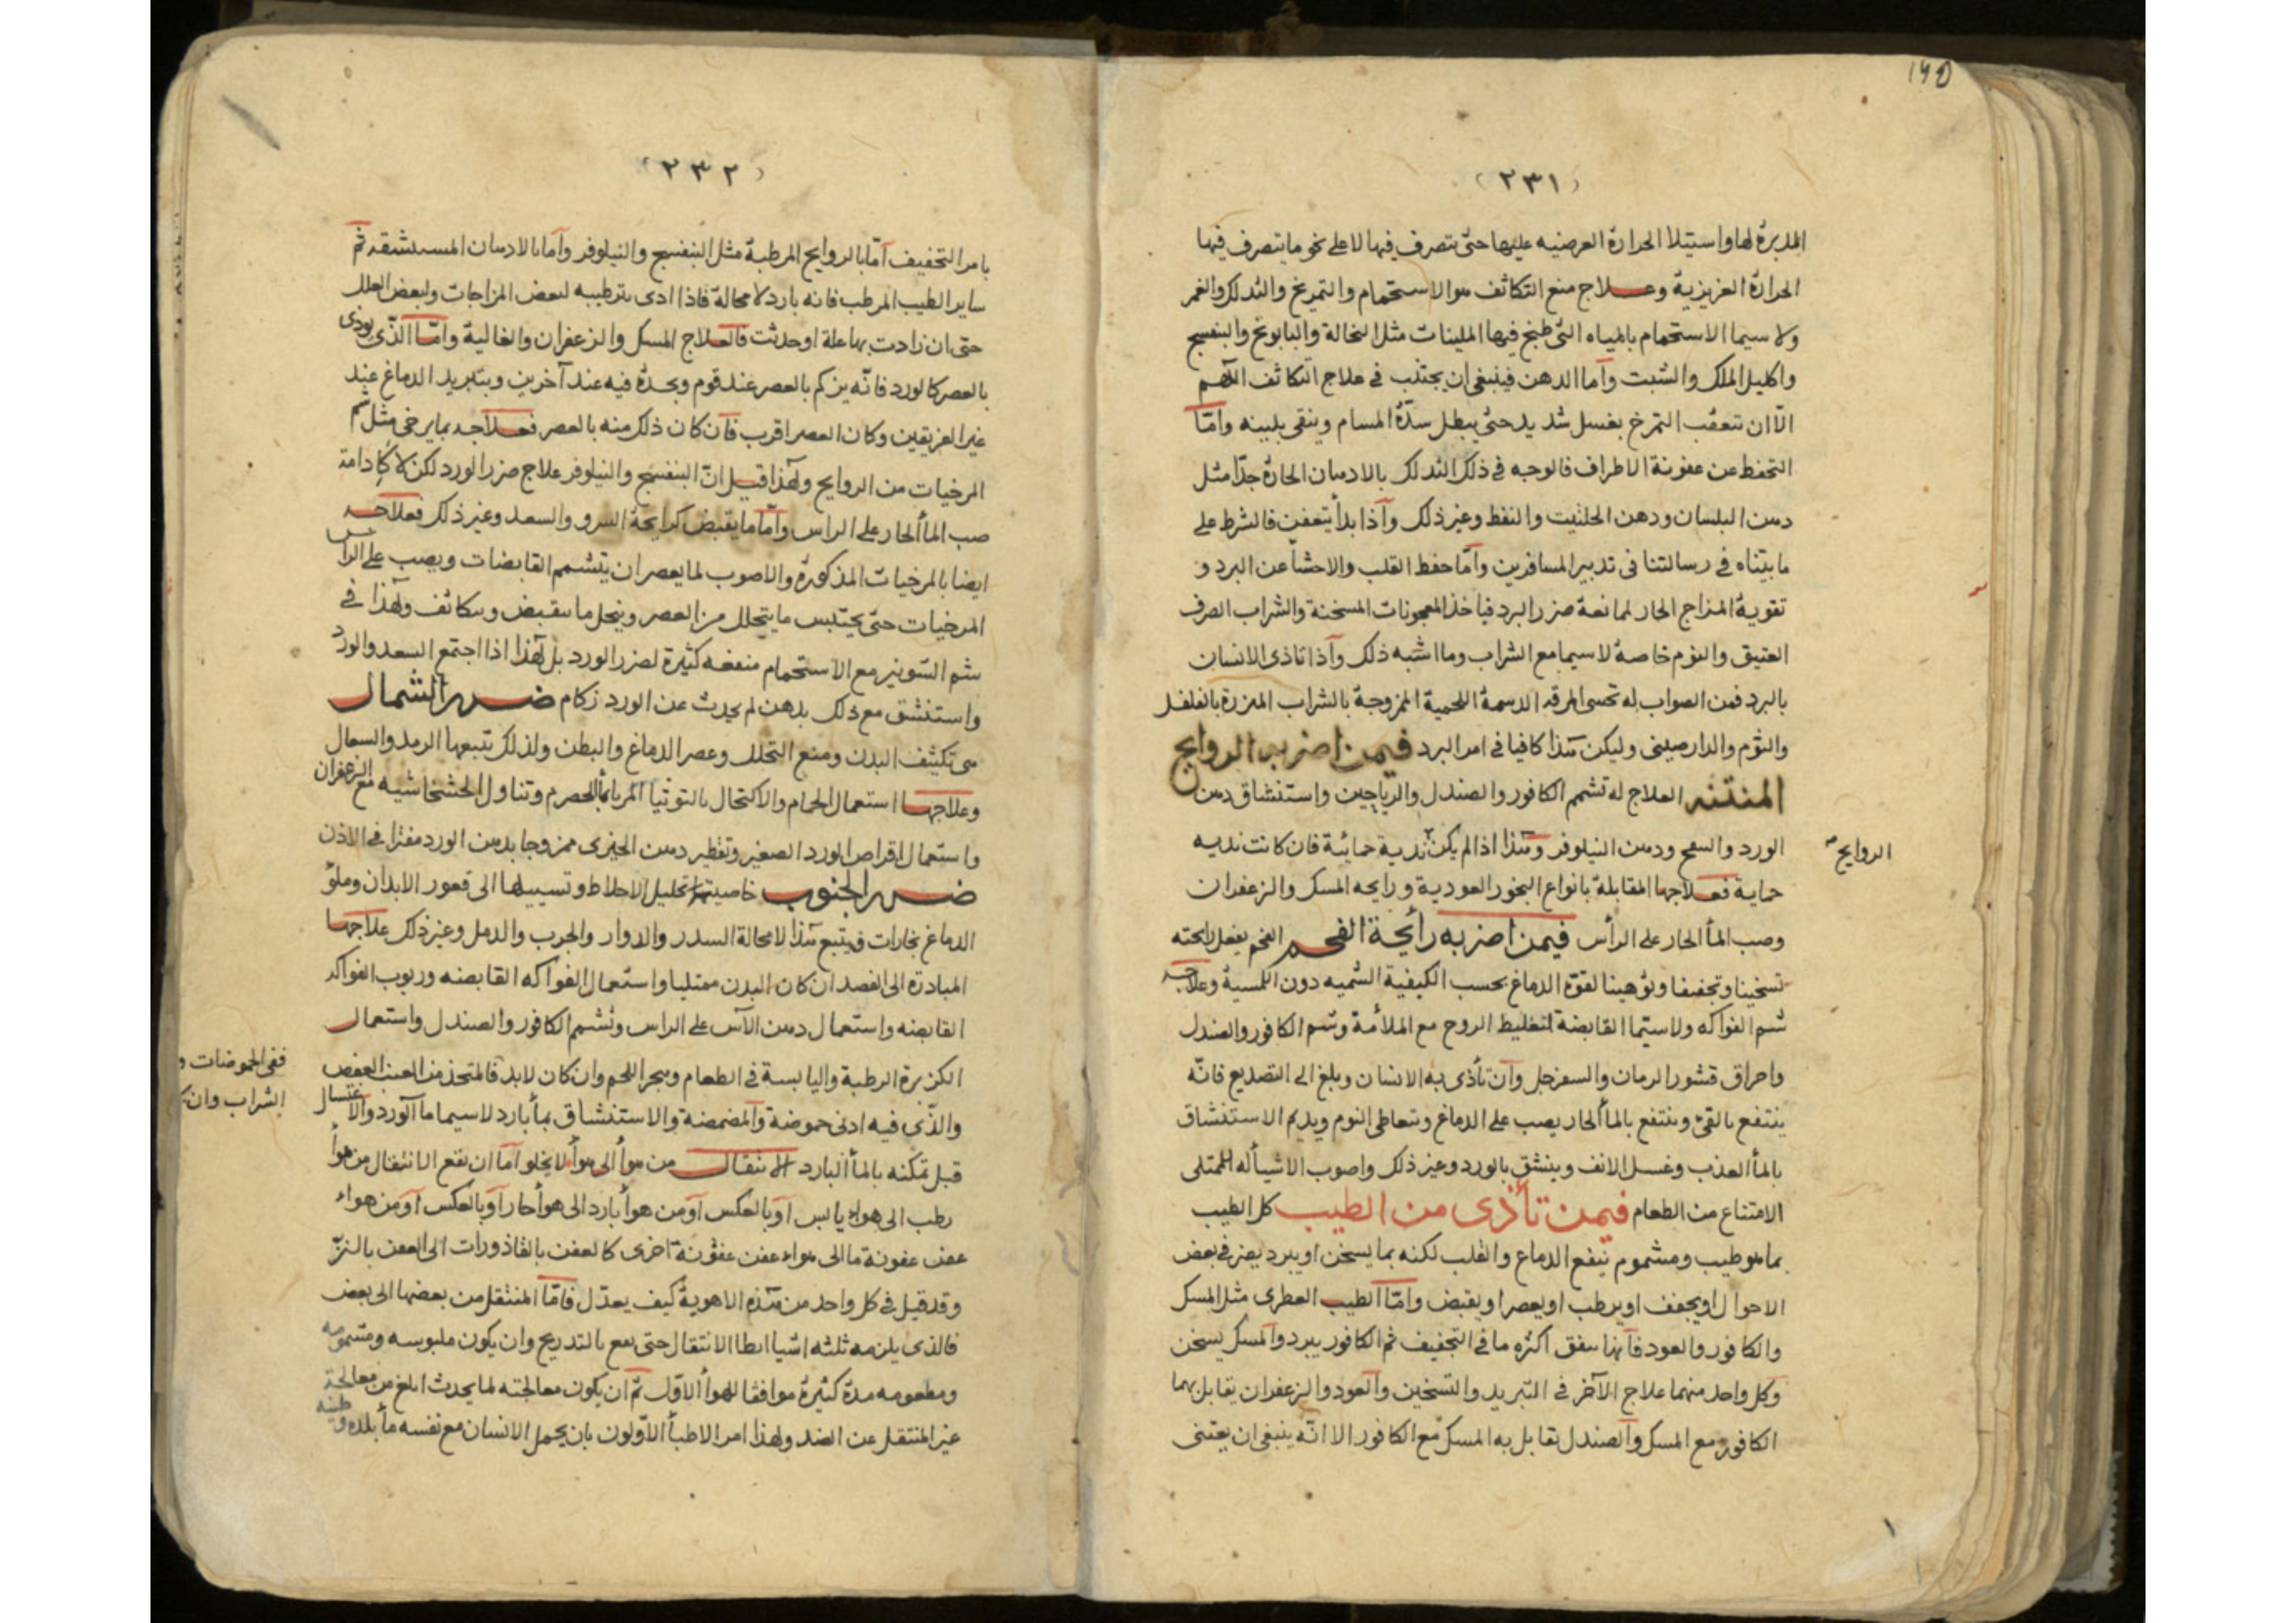 ١٩٥
(٢٣١)
المدبرة لها واستيلا الحرارة العرضيه عليها حتى تتصرف فيها لا على نحو ما يتصرف فيها
الحرارة الغريزية وعلاج منع التكاثف هو الاستحمام والتمريخ والتدلك والغمر
ولا سيما الاستحمام بالمياه التى طبخ فيها الملينات مثل النخالة والبابونج والبنفسج
واكليل الملك والشبت وأما الدهن فينبغى ان يجتنب فى علاج التكاثف اللهم
الّا ان تتعقب التمرخ بغسل شديد حتى يبطل سدّة المسام وينقى بلينه وامّا
التحفظ عن عفونة الاطراف فالوجه فى ذلك التدلك بالادهان الحارة جدّا مثل
دهن البلسان ودهن الحلتيت والنفط وغير ذلك وآذا بدأ يتعفن فالشرط على
ما بيّناه فى رسالتنا فى تدبير المسافرين وامّا حفظ القلب والاحشأ عن البرد و
تقوية المزاج الحار لممانعة ضرر البرد فياخذ المعجونات المسخنة والشراب الصرف
العتيق والثوم خاصة لا سيما مع الشراب وما اشبه ذلك وآذا تاذى الانسان
بالبرد فمن الصواب له تحسى المرقه الدسمة اللحمية الممزوجة بالشراب المبزرة بالفلفل
والثوم والدارصينى وليكن هذا كافيا فى امر البرد فيمن اضر به الروايح
المنتنه العلاج له تشمم الكافور والصندل والرياحين واستنشاق دهن
الورد والبنفسج ودهن النيلوفر وهذا اذا لم يكن نديه حمائية فان كانت نديه
الروايح
حماية فعلاجها المقابلة بانواع البخور العودية ورايحه المسك والزعفران
وصب المأ الحار على الرأس فيمن اضر به رأيحة الفحم الفحم يفعل رايحته
تسخينا وتجفيفا وتوهينا لقوة الدماغ بحسب الكيفية الشميه دون اللمسية وعلاجه
شم الفواكه ولاسيّما القابضة لتغليظ الروح مع الملأمة وشم الكافور والصندل
واحراق قشور الرمان والسفرجل وآن تأذى به الانسان وبلغ الى التصديع فانّه
ينتفع بالقئ وينتفع بالمأ الحار يصب على الدماغ وبتعاطى النوم ويديم الاستنشاق
بالمأ العذب وغسل الانف وينشق بالورد وغير ذلك واصوب الاشيأ له الممتلى
الامتناع من الطعام فيمن تأذى من الطيب كل الطيب
بما هو طيب ومشموم ينفع الدماغ والقلب لكنه بما يسخن او يبرد يضر فى بعض
الاحوال او يجفف او يرطب او يعصر او يقبض وامّا الطيب العطرى مثل المسك
والكافور والعود فآنها يتفق اكثره ما فى التجفيف ثم الكافور يبرد وآلمسك يسخن
وكل واحد منهما علاج الآخر فى التبريد والتسخين والعود والزعفران يقابل بهما
الكافور مع المسك والصندل تقابل به المسك مع الكافور الا انّه ينبغى ان يعتنى
(٢٣٢)
بامر التخفيف آمّا بالروايح المرطبة مثل البنفسج والنيلوفر وآما بالادهان المستنشقه ثم
ساير الطيب المرطب فانه بارد لا محالة فاذا ادى بترطيبه لبعض المزاجات ولبعض العلل
حتى ان زادت بها علة او حدثت فالعلاج المسك والزعفران والغالية وامّا الذّى يوذى
بالعصر كالورد فانّه يزكم بالعصر عند قوم وبحدة فيه عند آخرين وبتبريد الدماغ عند
غير الفريقين وكان العصر اقرب فآن كان ذلك منه بالعصر فعلاجه بما يرخى مثل شم
المرخيات من الروايح ولهذا قيل انّ البنفسج والنيلوفر علاج ضرر الورد لكن لا كادامة
صب المأ الحار على الراس وامّا ما يقبض كرايحة السرو والسعد وغير ذلك فعلاجه
ايضا بالمرخيات المذكورة والاصوب لما يعصر ان يتشمم القابضات ويصب على الراس
المرخيات حتى يحتبس ما يتحلل من العصر وينحل ما ينقبض ويتكاثف ولهذا فى
شم الشونيز مع الاستحمام منفعه كثيرة لضرر الورد بل لهذا اذا اجتمع السعد والورد
واستنشق مع ذلك بدهن لم يحدث عن الورد زكام ضرر الشمال
هى تكثيف البدن ومنع التحلل وعصر الدماغ والبطن ولذلك تتبعها الرمد والسعال
وعلاجها استعمال الحمام والاكتحال بالتوتيا المربا بمأ الحصرم وتناول الخشخاشيه مع الزعفران
واستعمال اقراص الورد الصغير وتقطير دهن الخيرى ممزوجا بدهن الورد مفترا فى الاذن
ضرر الجنوب خاصيتها تحليل الاخلاط وتسييلها الى قعور الابدان وملؤ
الدماغ بخارات فيتبع هذا لا محالة السدر والدوار والجرب والدمل وغير ذلك علاجها
المبادرة الى الفصد ان كان البدن ممتليا واستعمال الفواكه القابضه وربوب الفواكه
القابضه واستعمال دهن الآس على الراس وتشمم الكافور والصندل واستعمال
الكزبرة الرطبة واليابسة فى الطعام وهجر اللحم وان كان لابد فالمتخذ من العنب العفص
ففى الحموضات و
والذّى فيه ادنى حموضة وآلمضمضة والاستنشاق بمأ بارد لاسيما ما آلورد والاغتسال
الشراب وان
قبل تمكنه بالمأ البارد الانتقال من هوأ الى هوأ لا يخلو آما ان يقع الانتقال من هوأ
رطب الى هواء يابس آو بالعكس آو من هوأ بارد الى هوأ حار آو بالعكس آو من هواء
عفن عفونة ما الى هواء عفن عفونة اخرى كالعفن بالقاذورات الى العفن بالنزّ
وقد قيل فى كل واحد من هذه الاهوية كيف يعدّل فامّا المنتقل من بعضها الى بعض
فالذى يلزمه ثلثه اشيا ابطا الانتقال حتى يقع بالتدريج وان يكون ملبوسه ومشمومه
ومطعومه مدة كثيرة موافقا للهوأ الاوّل ثم ان يكون معالجته لما يحدث ابلغ من معالجة
غير المنتقل عن الضد ولهذا امر الاطبأ الاوّلون بان يحمل الانسان مع نفسه مأ بلده وطينه